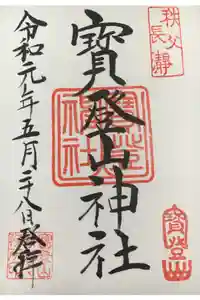 秩父
長瀞
寶登山神社
寶登山
神社
寶登山
令和元年五月二十八日登拝